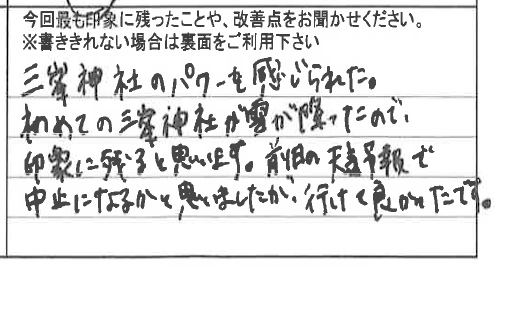 今回最も印象に残ったことや、改善点をお聞かせください。
※書ききれない場合は裏面をご利用下さい
三峯神社のパワーを感じられた。
初めての三峯神社が雪が降ったので、
印象に残ると思います。前日の天気予報で
中止になるかと思いましたが、行けて良かったです。